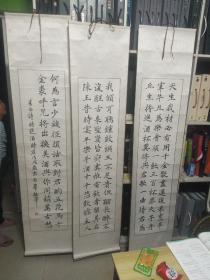 天生我材必有用千金散盡還復來烹羊
宰牛且為樂會須一飲三百杯岑夫子丹
丘生將進酒君莫停與君歌一曲請君為
我傾耳聽鐘鼓饌玉不足貴但願長醉不
復醒古來聖賢皆寂寞惟有飲者留其名
陳王昔時宴平樂斗酒十千恣歡謔主人
何為言少錢徑須沽取對君酌五花馬千
金裘呼兒將出換美酒與爾同銷萬古愁
李白詩將進酒